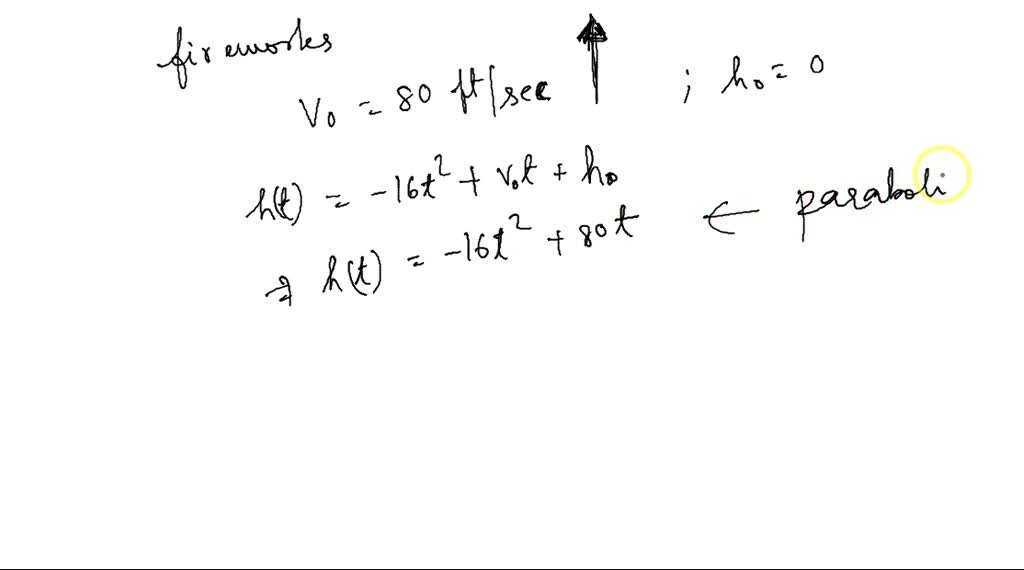 fireworks
V₀ = 80 ft/sec ↑ ; h₀ = 0
h(t) = -16t² + v₀t + h₀
⇒ h(t) = -16t² + 80t ← paraboli